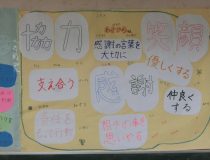 協力
感謝の言葉を
大切に
笑顔
優しくする
支え合う
感謝
仲良く
する
相手の事を
思いやる